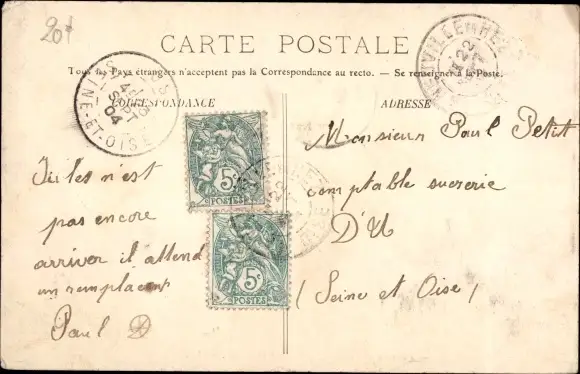 20f
CARTE POSTALE
Tous les Pays étrangers n'acceptent pas la Correspondance au recto. — Se renseigner à la Poste.
CORRESPONDANCE
ADRESSE
SEINE-ET-OISE
SEPT
04
NEUVILLE
22
5c
POSTES
5c
POSTES
Jules n'est
pas encore
arriver il attend
un remplacent
Paul D
Monsieur Paul Petit
comptable sucrerie
D'U
(Seine et Oise)